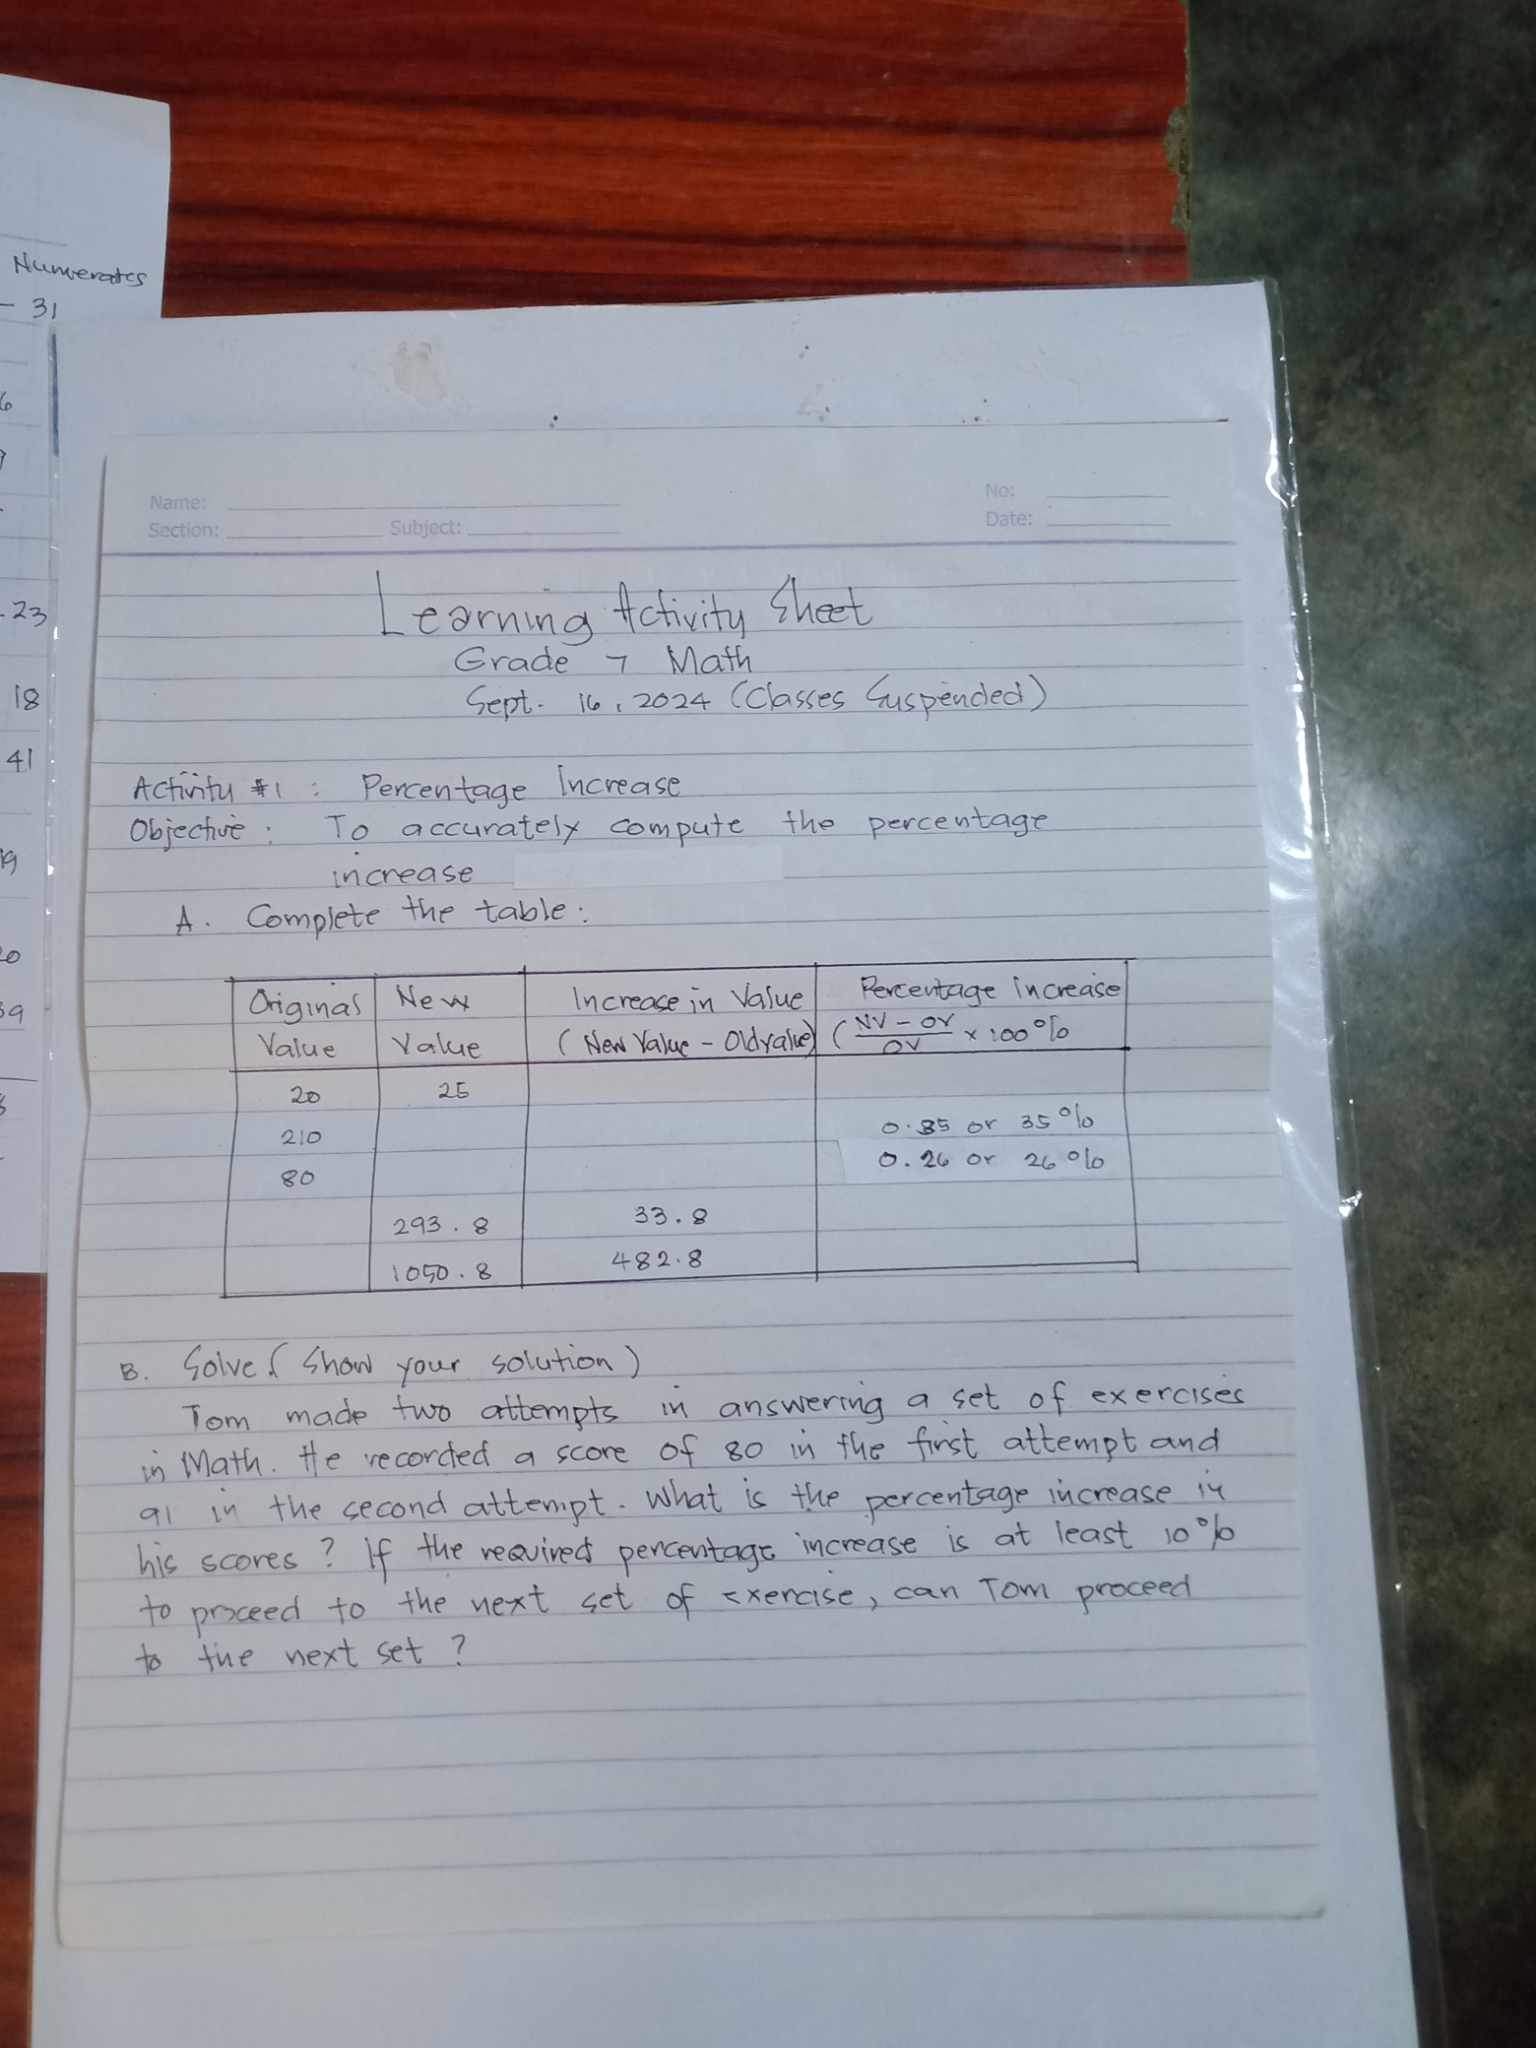 Numerates
- 31
6
- 23
18
41
19
20
39
Name:
No:
Section: Subject:
Date:
Learning Activity Sheet
Grade 7 Math
Sept. 16, 2024 (Classes Suspended)
Activity #1 : Percentage Increase
Objective : To accurately compute the percentage
increase
A. Complete the table :
Original Value New Value Increase in Value (New Value - Old value) Percentage increase (NV - OV / OV x 100%
20 25
210 0.35 or 35%
80 0.26 or 26%
293.8 33.8
1050.8 482.8
B. Solve ( Show your solution )
Tom made two attempts in answering a set of exercises
in Math. He recorded a score of 80 in the first attempt and
91 in the second attempt. What is the percentage increase in
his scores ? If the required percentage increase is at least 10%
to proceed to the next set of exercise, can Tom proceed
to the next set ?